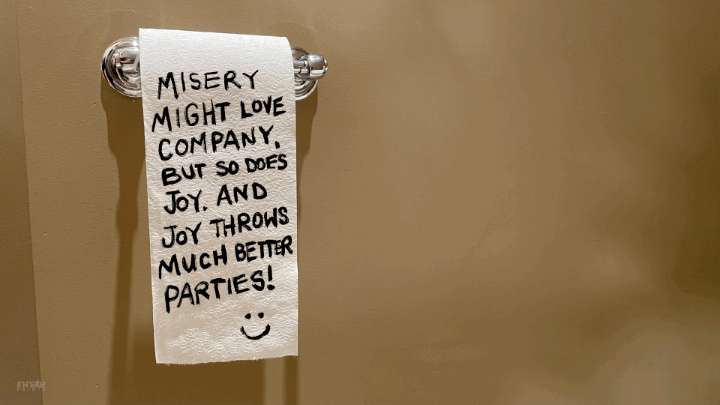 MISERY
MIGHT LOVE
COMPANY,
BUT SO DOES
JOY. AND
JOY THROWS
MUCH BETTER
PARTIES!